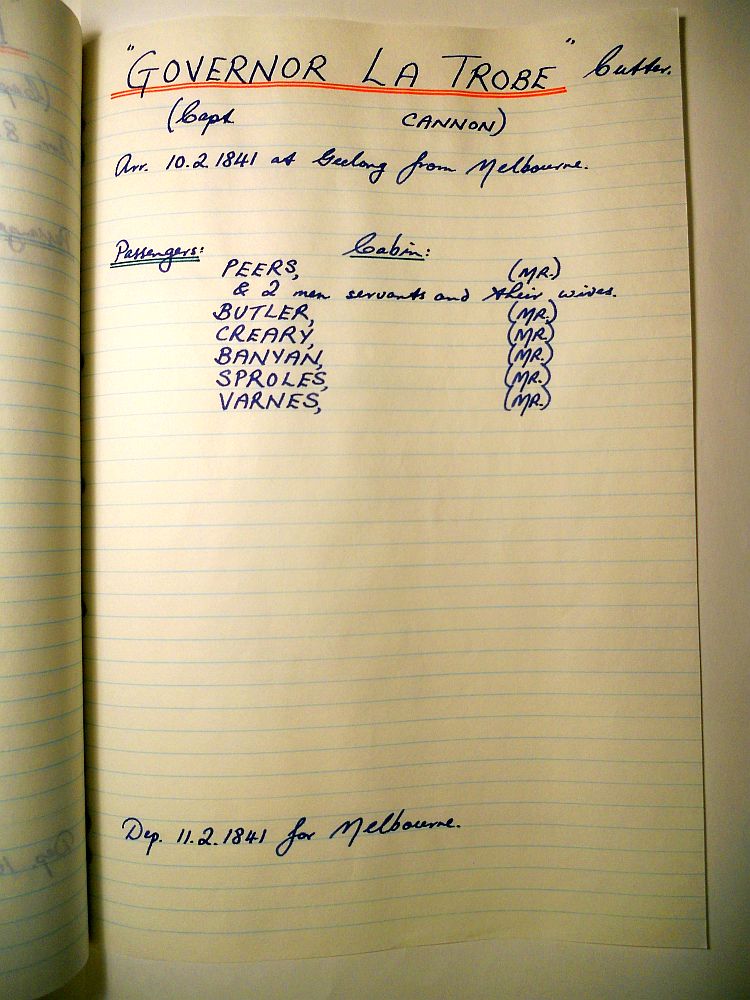 "GOVERNOR LA TROBE" Cutter.
(Capt CANNON)
Arr. 10.2.1841 at Geelong from Melbourne.
Passengers: Cabin:
PEERS, (MR.)
& 2 men servants and their wives.
BUTLER, (MR.)
CREARY, (MR.)
BANYAN, (MR.)
SPROLES, (MR.)
VARNES, (MR.)
Dep. 11.2.1841 for Melbourne.